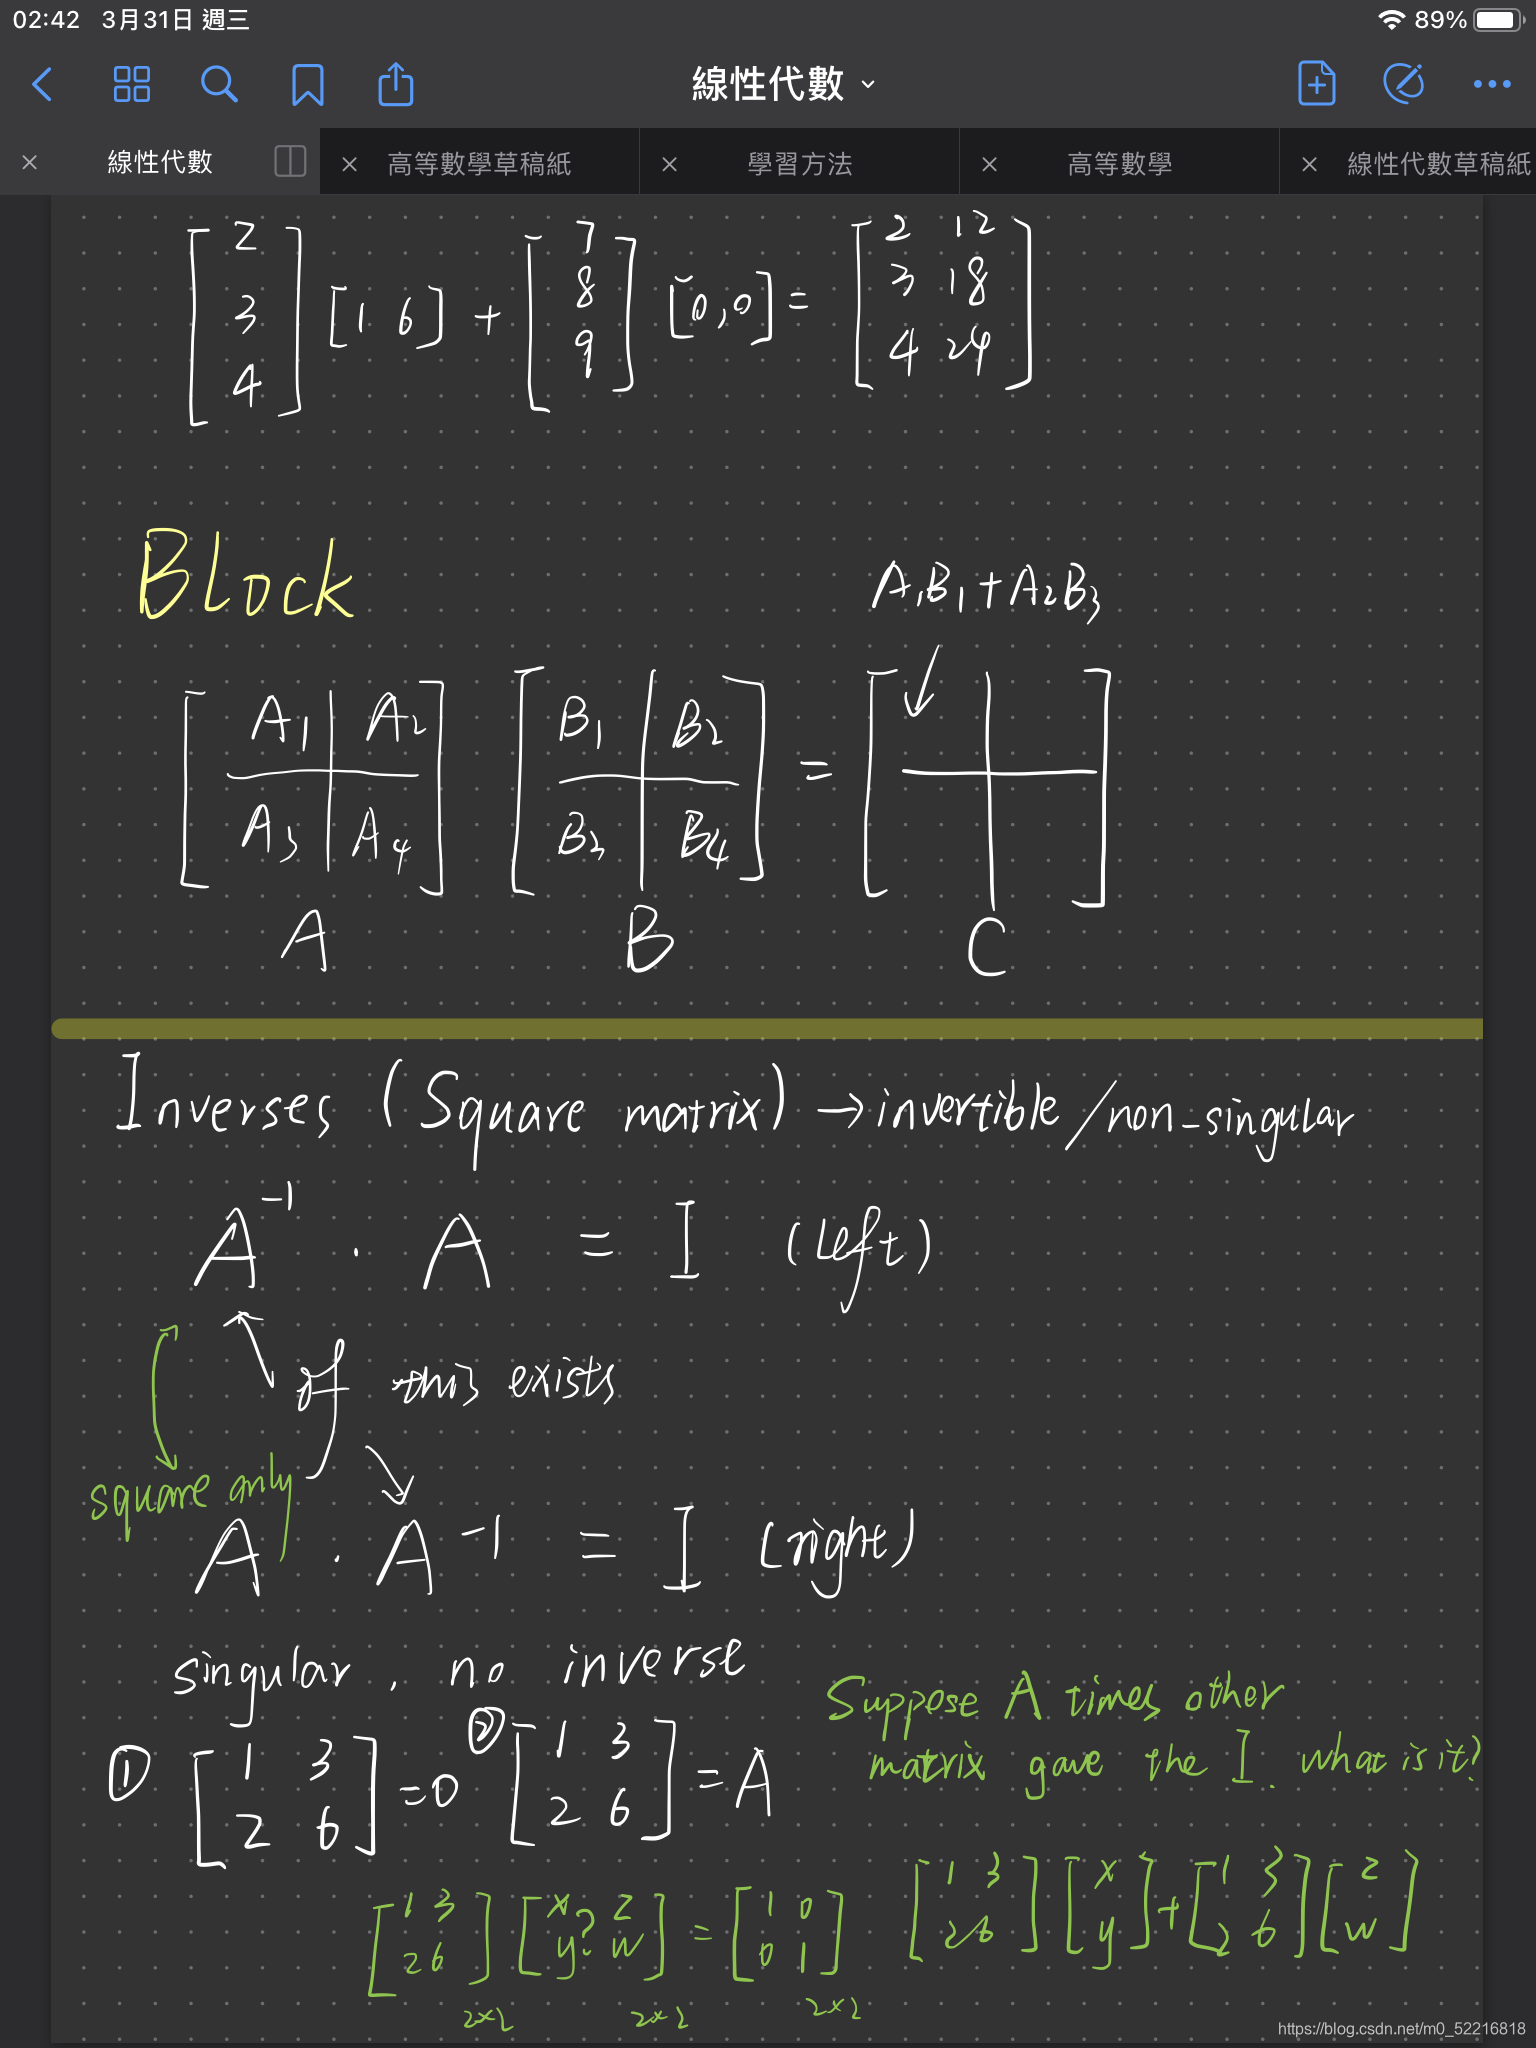 02:42 3月31日 週三 89%
線性代數
線性代數 高等數學草稿紙 學習方法 高等數學 線性代數草稿紙
[2 3 4] [1 6] + [7 8 9] [0,0] = [2 12
3 18
4 24]
Block
A₁B₁+A₂B₃
[A₁ A₂ [B₁ B₂ = [ ]
A₃ A₄] B₃ B₄]
A B C
Inverses (Square matrix) → invertible/non-singular
A⁻¹ · A = I (left)
if this exists
square only
A · A⁻¹ = I (right)
singular, no inverse
① [1 3 = 0 ② [1 3 = A
2 6] 2 6]
Suppose A times other
matrix gave the I. what is it?
[1 3 [x ? z = [1 0
2 6] y ? w] 0 1]
2×2 2×2 2×2
[1 3 [x + [1 3 [z
2 6] y] 2 6] w]
https://blog.csdn.net/m0_52216818